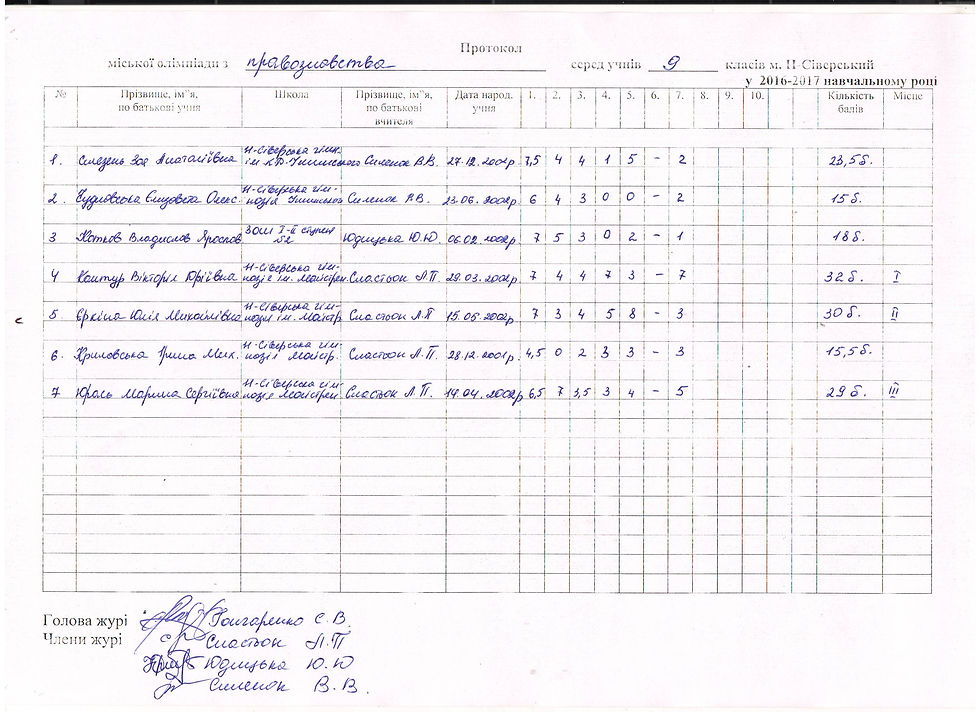 Протокол
міської олімпіади з правознавства серед учнів 9 класів м. Н-Сіверський
у 2016-2017 навчальному році
№ Прізвище, ім"я, по батькові учня Школа Прізвище, ім"я, по батькові вчителя Дата народ. учня 1. 2. 3. 4. 5. 6. 7. 8. 9. 10. Кількість балів Місце
1. Зоя Анатоліївна Н-Сіверська гімн. ім. К.Д. Ушинського Силенок В.В. 27.12.2001р. 7,5 4 4 1 5 - 2 23,5б.
2. Єлизавета Олекс. Н-Сіверська гімназія Ушинського Силенок В.В. 23.06.2002р. 6 4 3 0 0 - 2 15б.
3 Котков Владислав Яросл ЗОШ І-ІІ ступен №2 Юдицька Ю.Ю. 06.02.2002р. 7 5 3 0 2 - 1 18б.
4 Контур Вікторія Юріївна Н-Сіверська гімназія ім. Сластьон Л.П. 29.03.2002р. 7 4 4 7 3 - 7 32б. І
5. Єркіна Юлія Михайлівна Н-Сіверська гімназія ім. Сластьон Л.П 15.05.2002р. 7 3 4 5 8 - 3 30б. ІІ
6. Криловська Ірина Мик. Н-Сіверська гімназія Сластьон Л.П. 28.12.2001р. 4,5 0 2 3 3 - 3 15,5б.
7 Марина Сергіївна Н-Сіверська гімназія Сластьон Л.П. 14.04.2002р 6,5 7 3,5 3 4 - 5 29б. ІІІ
Голова журі Гончаренко С.В.
Члени журі Сластьон Л.П
Юдицька Ю.Ю
Силенок В.В.